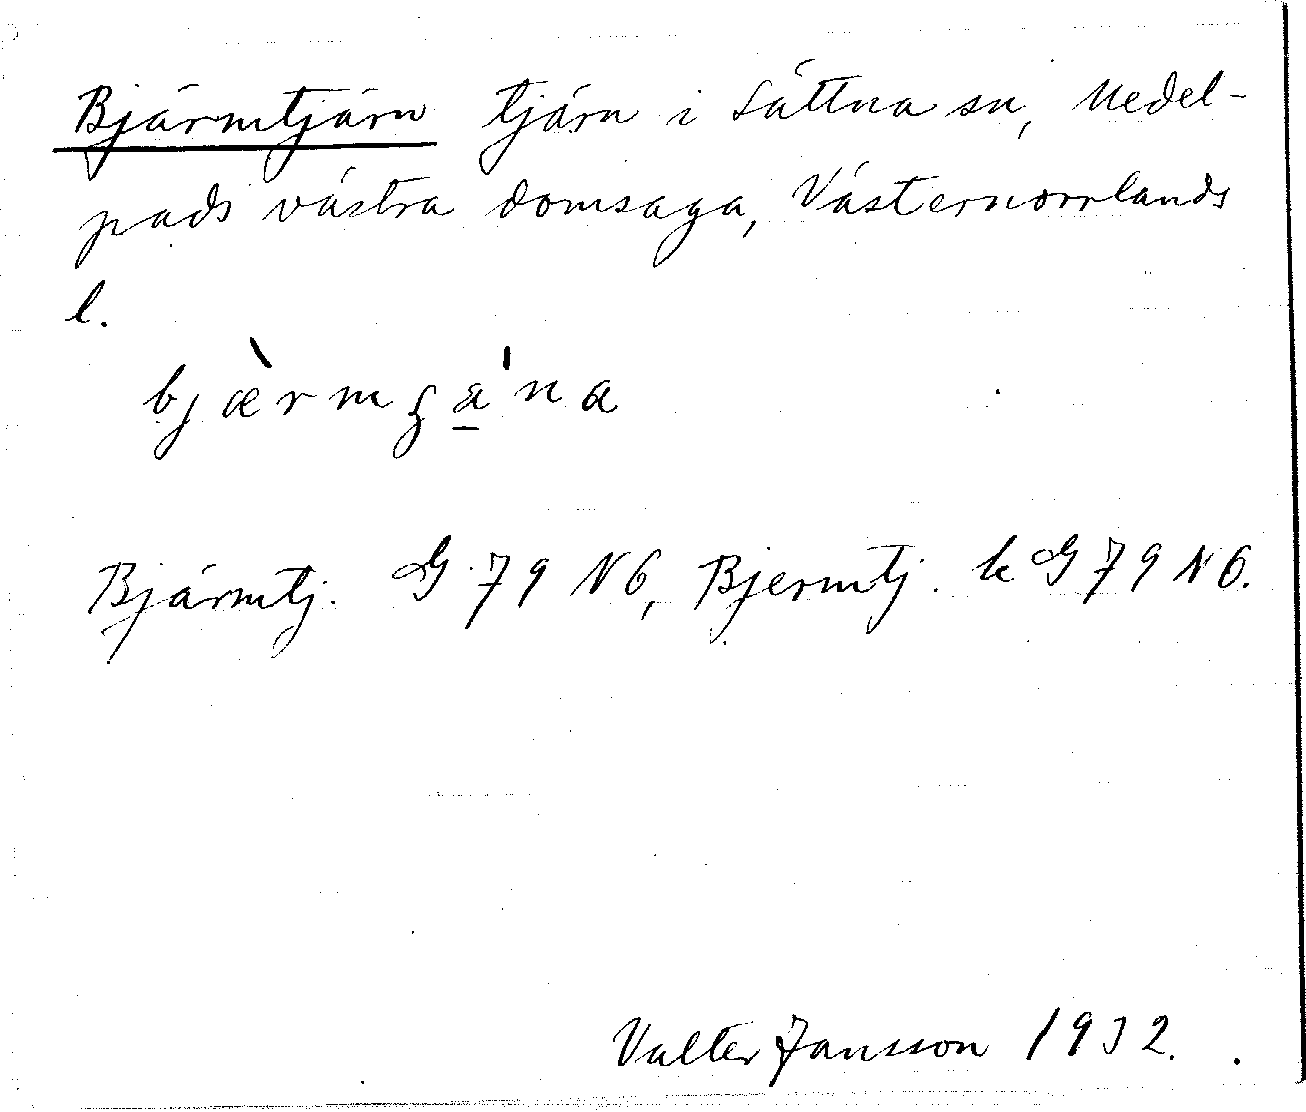 Bjärmtjärn tjärn i Sättna sn, Medel-
pads västra domsaga, Västernorrlands
l.
bjæ̀rmʂa̱'na
Bjärmtj. G 79 N6, Bjermtj. k G 79 N6.
Valter Jansson 1932.